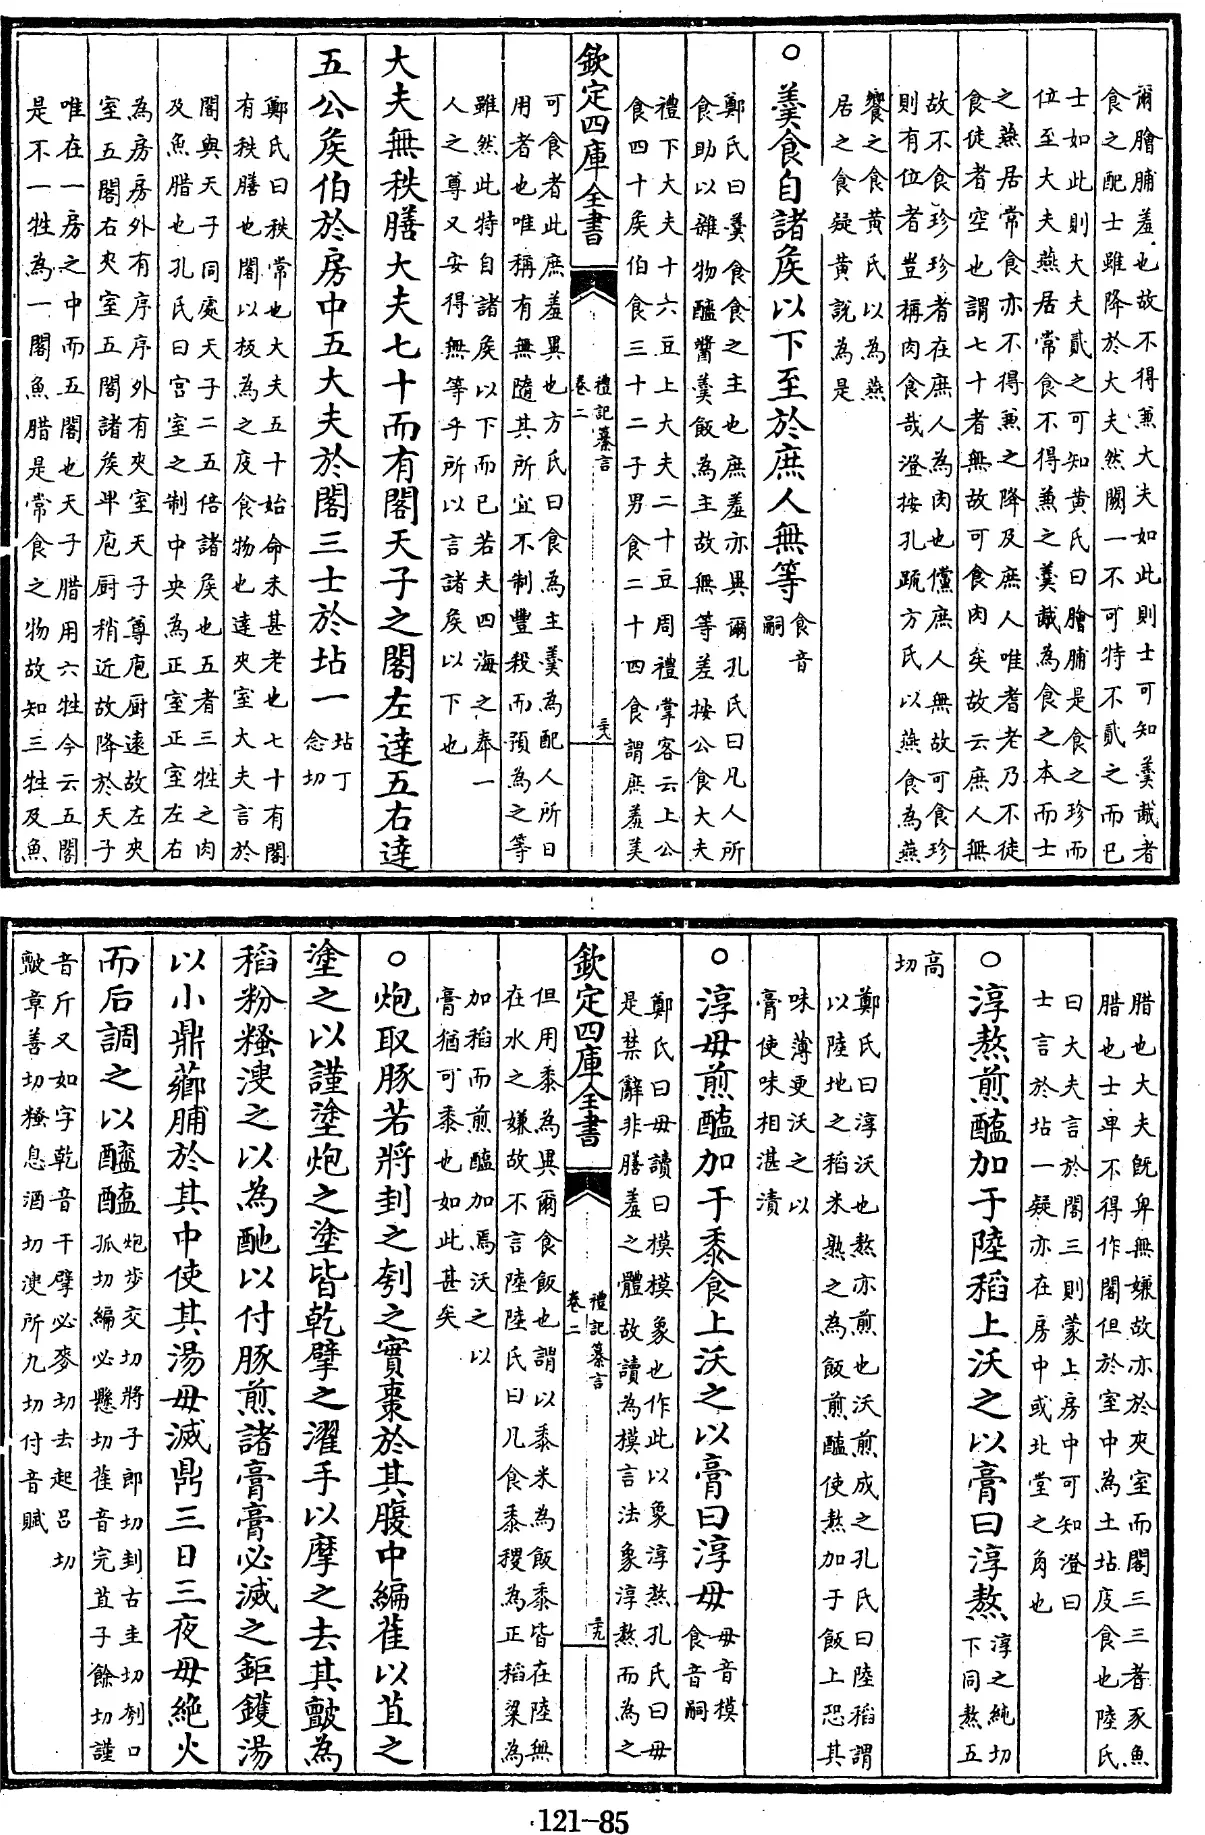 爾膾脯羞也故不得兼大夫如此則士可知羹胾者
食之配士雖降於大夫然闕一不可特不貳之而已
士如此則大夫貳之可知黃氏曰膾脯是食之珍而
位至大夫燕居常食不得兼之羹胾為食之本而士
之燕居常食亦不得兼之降及庶人唯耆老乃不徒
食徒者空也謂七十者無故可食肉矣故云庶人無
故不食珍珍者在庶人為肉也儻庶人無故可食珍
則有位者豈稱肉食哉澄按孔疏方氏以燕食為燕
饗之食黃氏以為燕
居之食疑黃說為是
○羹食自諸侯以下至於庶人無等
食音
嗣
鄭氏曰羹食食之主也庶羞亦異爾孔氏曰凡人所
食助以雜物醯醬羹飯為主故無等差按公食大夫
禮下大夫十六豆上大夫二十豆周禮掌客云上公
食四十侯伯食三十二子男食二十四食謂庶羞美
欽定四庫全書
禮記纂言
卷二
三八
可食者此庶羞異也方氏曰食為主羹為配人所日
用者也唯稱有無隨其所宜不制豐殺而預為之等
雖然此特自諸侯以下而已若夫四海之奉一
人之尊又安得無等乎所以言諸侯以下也
大夫無秩膳大夫七十而有閣天子之閣左達五右達
五公侯伯於房中五大夫於閣三士於坫一
坫丁
念切
鄭氏曰秩常也大夫五十始命未甚老也七十有閣
有秩膳也閣以板為之庋食物也達夾室大夫言於
閣與天子同處天子二五倍諸侯也五者三牲之肉
及魚腊也孔氏曰宮室之制中央為正室正室左右
為房房外有序序外有夾室天子尊庖厨遠故左夾
室五閣右夾室五閣諸侯卑庖厨稍近故降於天子
唯在一房之中而五閣也天子腊用六牲今云五閣
是不一牲為一閣魚腊是常食之物故知三牲及魚
腊也大夫既卑無嫌故亦於夾室而閣三三者豕魚
腊也士卑不得作閣但於室中為土坫庋食也陸氏
曰大夫言於閣三則蒙上房中可知澄曰
士言於坫一疑亦在房中或北堂之角也
○淳熬煎醢加于陸稻上沃之以膏曰淳熬
淳之純切
下同熬五
高
切
鄭氏曰淳沃也熬亦煎也沃煎成之孔氏曰陸稻謂
以陸地之稻米熟之為飯煎醢使熬加于飯上恐其
味薄更沃之以
膏使味相湛漬
○淳毋煎醢加于黍食上沃之以膏曰淳毋
毋音模
食音嗣
鄭氏曰毋讀曰模模象也作此以象淳熬孔氏曰毋
是禁辭非膳羞之體故讀為模言法象淳熬而為之
欽定四庫全書
禮記纂言
卷二
三九
但用黍為異爾食飯也謂以黍米為飯黍皆在陸無
在水之嫌故不言陸陸氏曰凡食黍稷為正稻粱為
加稻而煎醢加焉沃之以
膏猶可黍也如此甚矣
○炮取豚若將刲之刳之實棗於其腹中編萑以苴之
塗之以謹塗炮之塗皆乾擘之濯手以摩之去其皽為
稻粉糔溲之以為酏以付豚煎諸膏膏必滅之鉅鑊湯
以小鼎薌脯於其中使其湯毋滅鼎三日三夜毋絶火
而后調之以醯醢
炮步交切將子郎切刲古圭切刳口
孤切編必懸切萑音完苴子餘切謹
音斤又如字乾音干擘必麥切去起呂切
皽章善切糔息酒切溲所九切付音賦
121-85